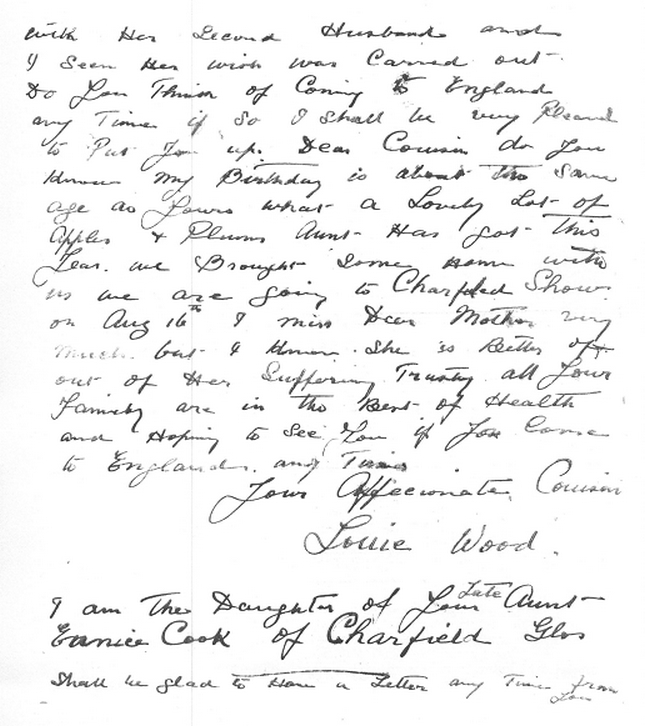 with Her Second Husband and
I Seen Her wish was Carried out
Do You Think of Coming to England
any Time if So I Shall be very Pleased
to Put You up. Dear Cousin do You
know my Birthday is about the Same
age as Yours what a Lovely Lot of
Apples & Plums Aunt Has got This
Year. we Brought Some Home with
us we are going to Charfield Show
on Aug 16th I miss Dear Mother very
much. but I Know She is Better off
out of Her Suffering Trusting all Your
Family are in the Best of Health
and Hoping to See You if You Come
to England. any Time
Your Affecionate Cousin
Louie Wood.
I am The Daughter of Your Late Aunt
Eunice Cook of Charfield Glos
Shall be glad to Have a Letter any Time from
You